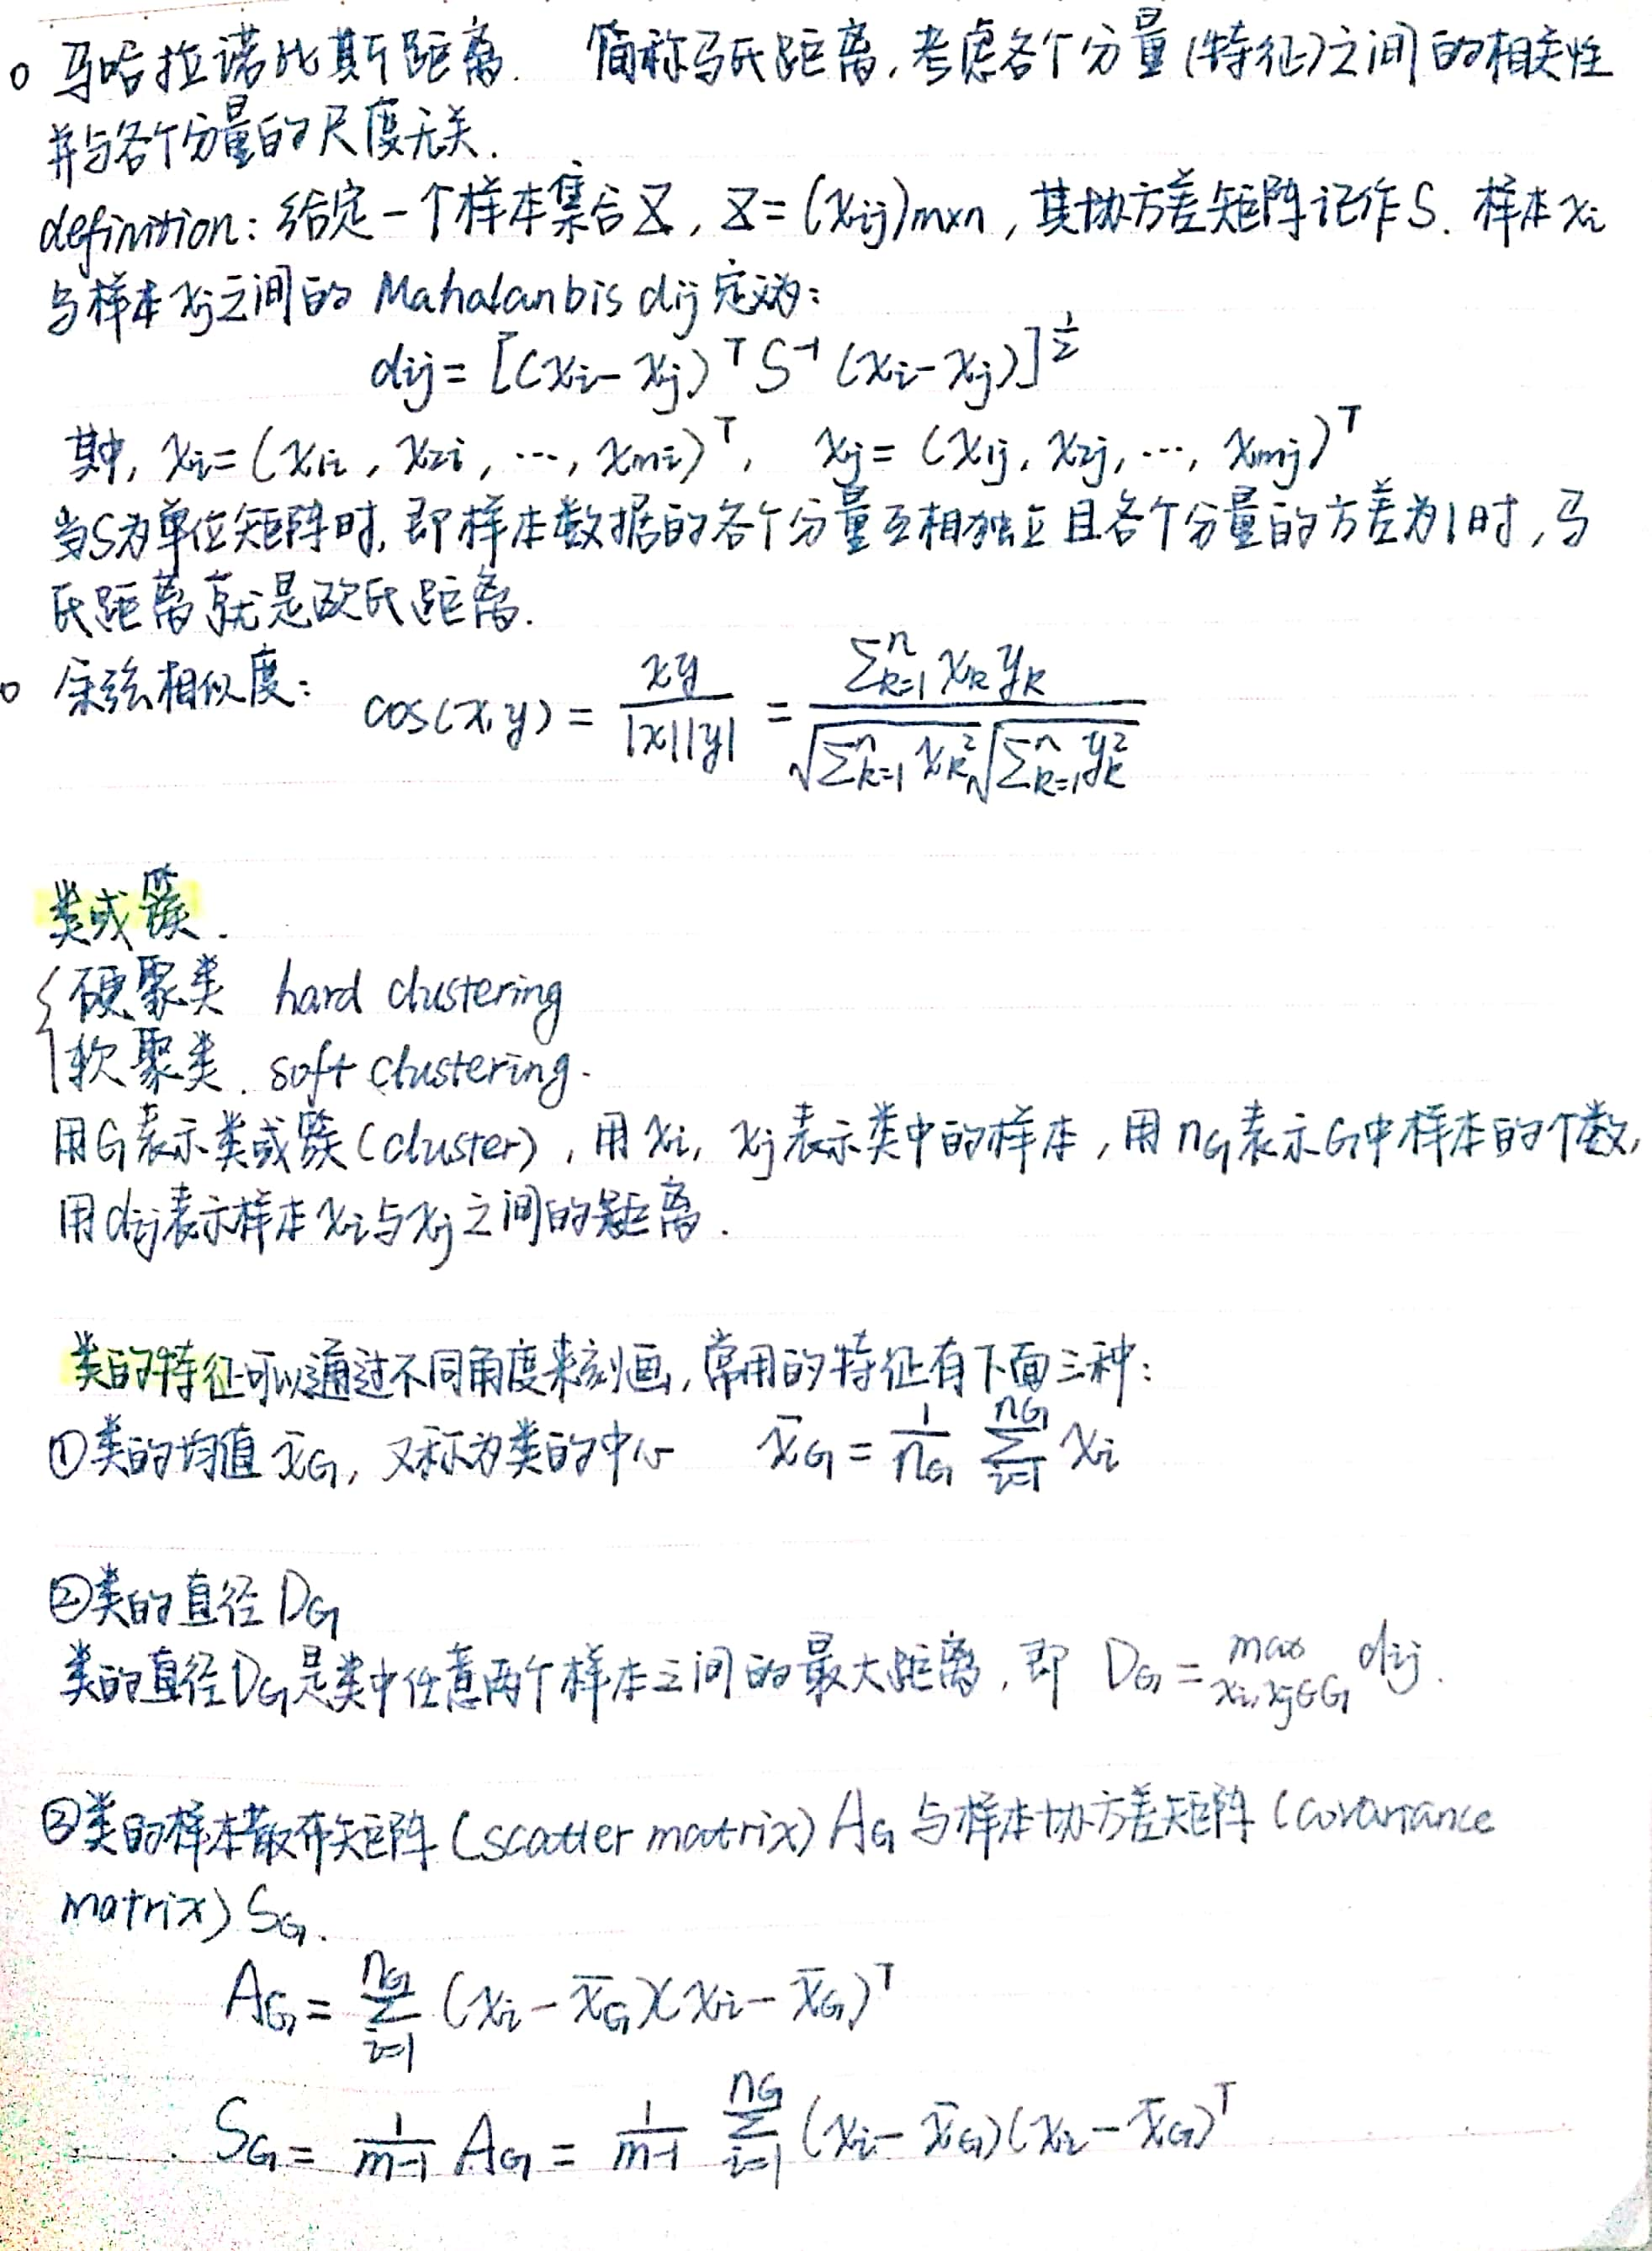 ○ 马哈拉诺比斯距离. 简称马氏距离,考虑各个分量(特征)之间的相关性
并与各个分量的尺度无关.
definition: 给定一个样本集合X, X=(xij)m×n, 其协方差矩阵记作S. 样本xi
与样本xj之间的 Mahalanbis dij 定义为:
dij = [(xi-xj)^T S^-1 (xi-xj)]^½
其中, xi=(x1i, x2i, ⋯, xmi)^T, xj=(x1j, x2j, ⋯, xmj)^T
当S为单位矩阵时,即样本数据的各个分量互相独立且各个分量的方差为1时,马
氏距离就是欧氏距离.
○ 余弦相似度: cos(x,y) = xy / |x||y| = ∑_{k=1}^n xk yk / √∑_{k=1}^n xk^2 √∑_{k=1}^n yk^2
类或簇.
{硬聚类 hard clustering
软聚类. soft clustering.
用G表示类或簇(cluster), 用xi, xj表示类中的样本,用nG表示G中样本的个数,
用dij表示样本xi与xj之间的距离.
类的特征可以通过不同角度来刻画,常用的特征有下面三种:
①类的均值 x̄G, 又称为类的中心 x̄G = 1/nG ∑_{i=1}^{nG} xi
②类的直径 DG
类的直径DG是类中任意两个样本之间的最大距离,即 DG = max_{xi,xj∈G} dij.
③类的样本散布矩阵(scatter matrix) AG 与样本协方差矩阵(covariance
matrix) SG.
AG = ∑_{i=1}^{nG} (xi-x̄G)(xi-x̄G)^T
SG = 1/m-1 AG = 1/m-1 ∑_{i=1}^{nG} (xi-x̄G)(xi-x̄G)^T